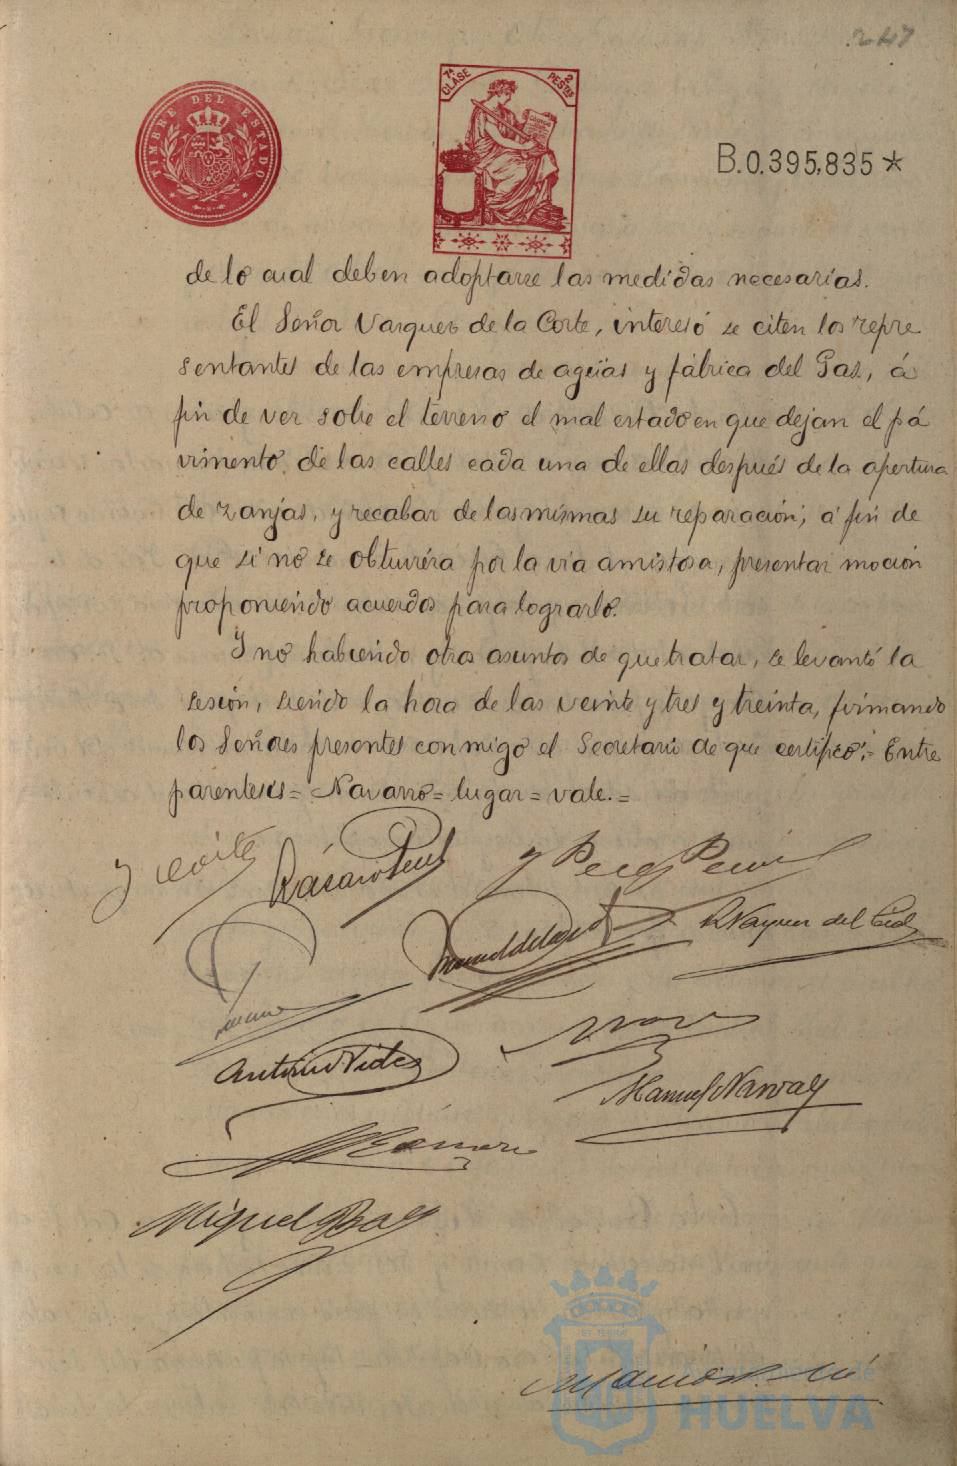 247
TIMBRE DEL ESTADO
7ª CLASE
2 PESTAS
B.0.395,835 *
de lo cual deben adoptarse las medidas necesarias.
El Señor Vazquez de la Corte, interesó se citen los repre
sentantes de las empresas de aguas y fábrica del Gas, á
fin de ver sobre el terreno el mal estado en que dejan el pa
vimento de las calles cada una de ellas después de la apertura
de zanjas, y recabar de las mismas su reparación, á fin de
que si no se obtuviera por la via amistosa, presentar moción
proponiendo acuerdos para lograrlo.
Y no habiendo otros asuntos de que tratar, se levantó la
sesión, siendo la hora de las veinte y tres y treinta, firmando
los Señores presentes conmigo el Secretario de que certifico.= Entre
parentesis = Navarro = lugar = vale.=
Antonio Vides
Manuel Narvay
Miguel Bay
Ayuntamiento de
HUELVA